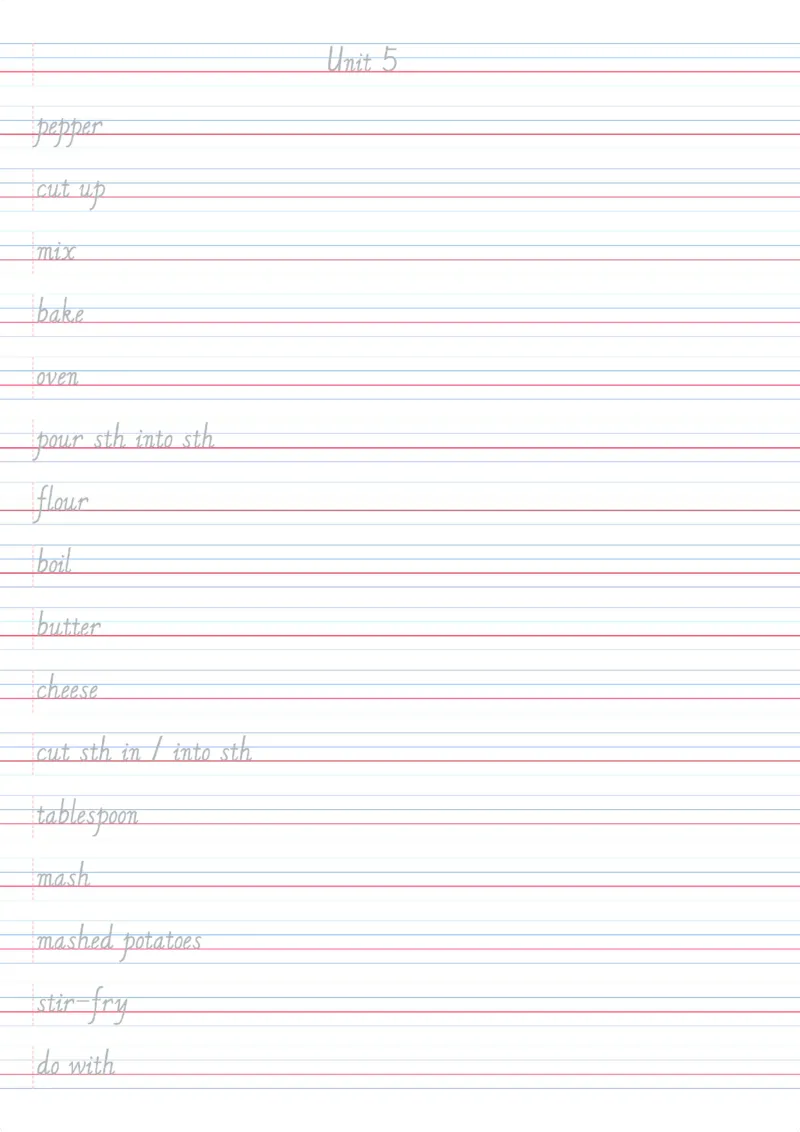 Unit 5
pepper
cut up
mix
bake
oven
pour sth into sth
flour
boil
butter
cheese
cut sth in / into sth
tablespoon
mash
mashed potatoes
stir-fry
do with